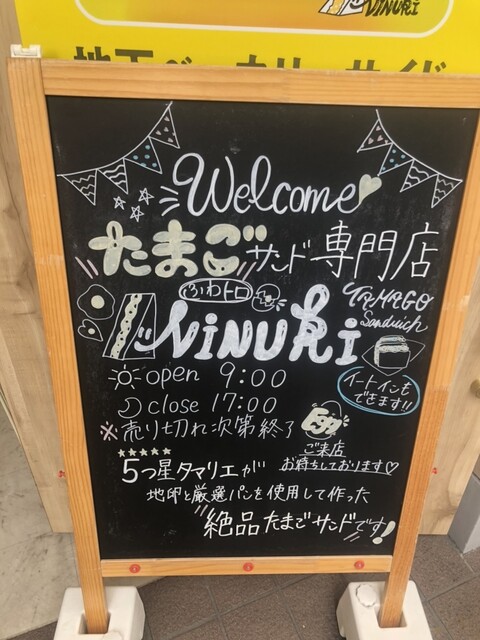 VINURI
Welcome
たまごサンド専門店
ふわトロ
TAMAGO
Sandwich
NiNURi
open 9:00
イートインも
できます!!
close 17:00
※売り切れ次第終了
ご来店
お待ちしております♡
★★★★★
5つ星タマリエが
地卵と厳選パンを使用して作った
絶品たまごサンドです!